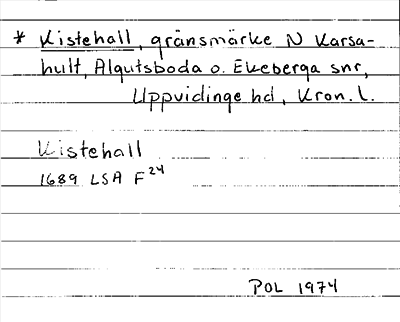 * Kistehall, gränsmärke N Karsa-
hult, Algutsboda o. Ekeberga snr,
Uppvidinge hd, Kron. l.
Kistehall
1689 LSA F24
POL 1974